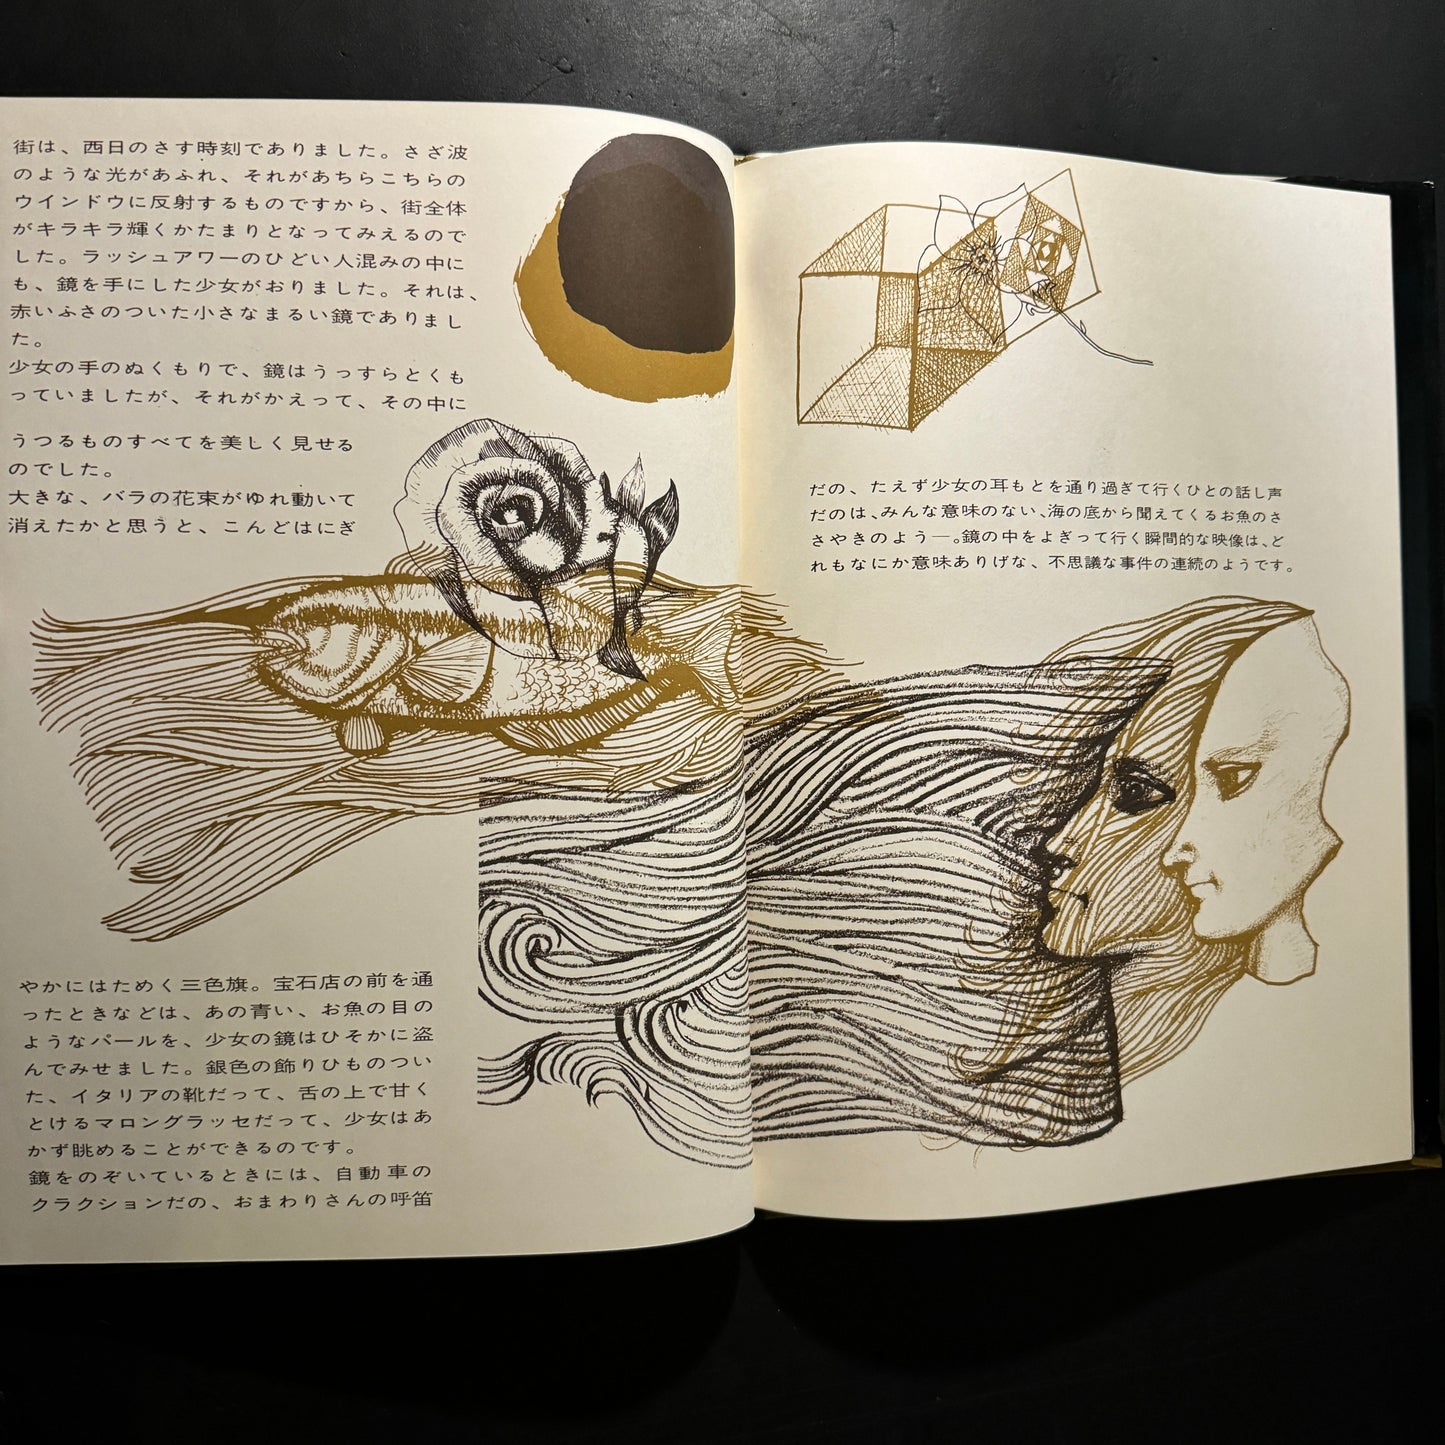 街は、西日のさす時刻でありました。さざ波
のような光があふれ、それがあちらこちらの
ウインドウに反射するものですから、街全体
がキラキラ輝くかたまりとなってみえるので
した。ラッシュアワーのひどい人混みの中に
も、鏡を手にした少女がおりました。それは、
赤いふさのついた小さなまるい鏡でありまし
た。
少女の手のぬくもりで、鏡はうっすらとくも
っていましたが、それがかえって、その中に
うつるものすべてを美しく見せる
のでした。
大きな、バラの花束がゆれ動いて
消えたかと思うと、こんどはにぎ
やかにはためく三色旗。宝石店の前を通
ったときなどは、あの青い、お魚の目の
ようなパールを、少女の鏡はひそかに盗
んでみせました。銀色の飾りひものつい
た、イタリアの靴だって、舌の上で甘く
とけるマロングラッセだって、少女はあ
かず眺めることができるのです。
鏡をのぞいているときには、自動車の
クラクションだの、おまわりさんの呼笛
だの、たえず少女の耳もとを通り過ぎて行くひとの話し声
だのは、みんな意味のない、海の底から聞えてくるお魚のさ
さやきのよう―。鏡の中をよぎって行く瞬間的な映像は、ど
れもなにか意味ありげな、不思議な事件の連続のようです。